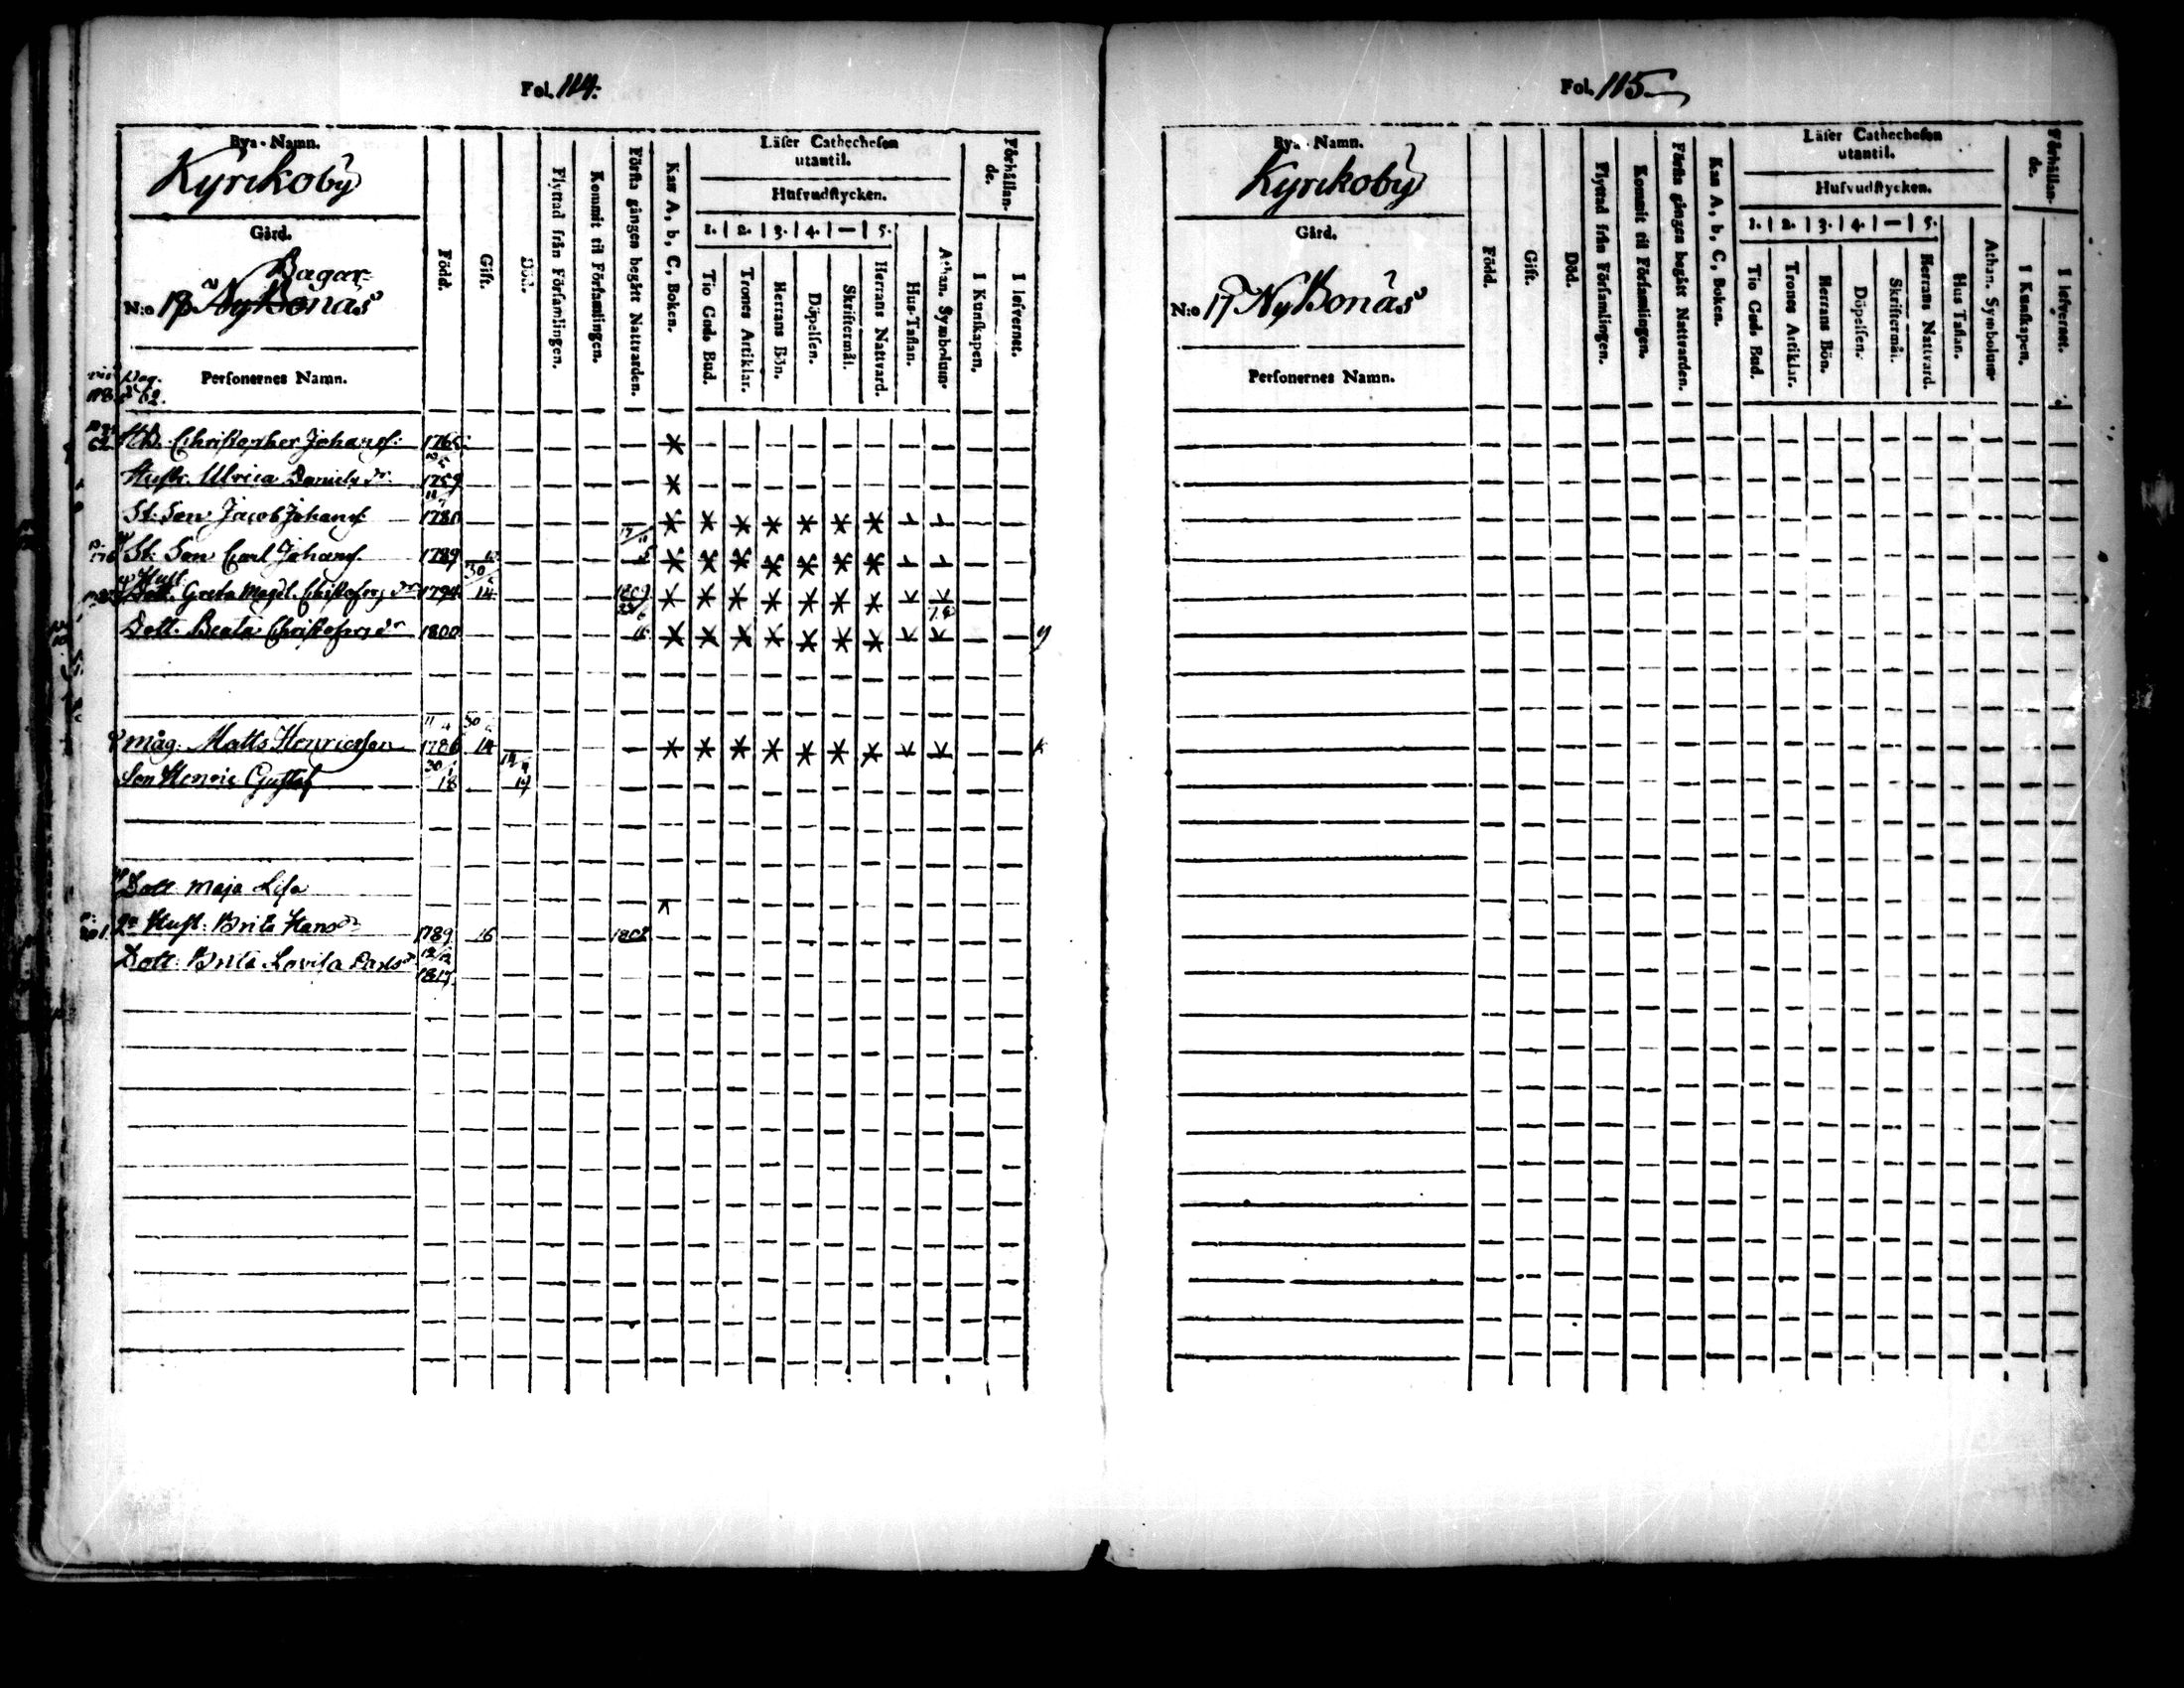 Fol. 114.
Bya-Namn.
Kyrckoby
Gård.
Bagar
N:o 17 Ny Bonäs
Personernes Namn.
Pag. 62.
Född.
Gift.
Död.
Flyttad från Församlingen.
Kommit til Församlingen.
Första gången begått Nattvarden.
Kan A, b, C, Boken.
Läser Cathechesen utantil.
Hufvudstycken.
1. 2. 3. 4. — 5.
Tio Guds Bud.
Trones Artiklar.
Herrans Bön.
Döpelsen.
Skriftermål.
Herrans Nattvard.
Hus-Taflan.
Athan. Symbolum.
Förhållande.
I Kunskapen.
I lefvernet.
62 Christopher Johansf: 1765
Hustr. Ulrica Daniels dr. 1759
St. Son Jacob Johansf. 1786
St. Son Carl Johansf 1789
Hust. Dott. Greta Magd. Christofers dr 1794 14
Dott. Beata Christofers dr 1800
måg. Matts Henricsson 1786 14
Son Henric Gustaf 18
Dott. Maja Lisa
Hust. Brita Hansdr 1789 16 1802
Dott. Brita Lovisa Carlsdr. 12/12 1817.
Fol. 115
Bya-Namn.
Kyrckoby
Gård.
N:o 17 Ny Bonäs
Personernes Namn.
Född.
Gift.
Död.
Flyttad från Församlingen.
Kommit til Församlingen.
Första gången begått Nattvarden.
Kan A, b, C, Boken.
Läser Cathechesen utantil.
Hufvudstycken.
1. 2. 3. 4. — 5.
Tio Guds Bud.
Trones Artiklar.
Herrans Bön.
Döpelsen.
Skriftermål.
Herrans Nattvard.
Hus Taflan.
Athan. Symbolum.
Förhållande.
I Kunskapen.
I lefvernet.